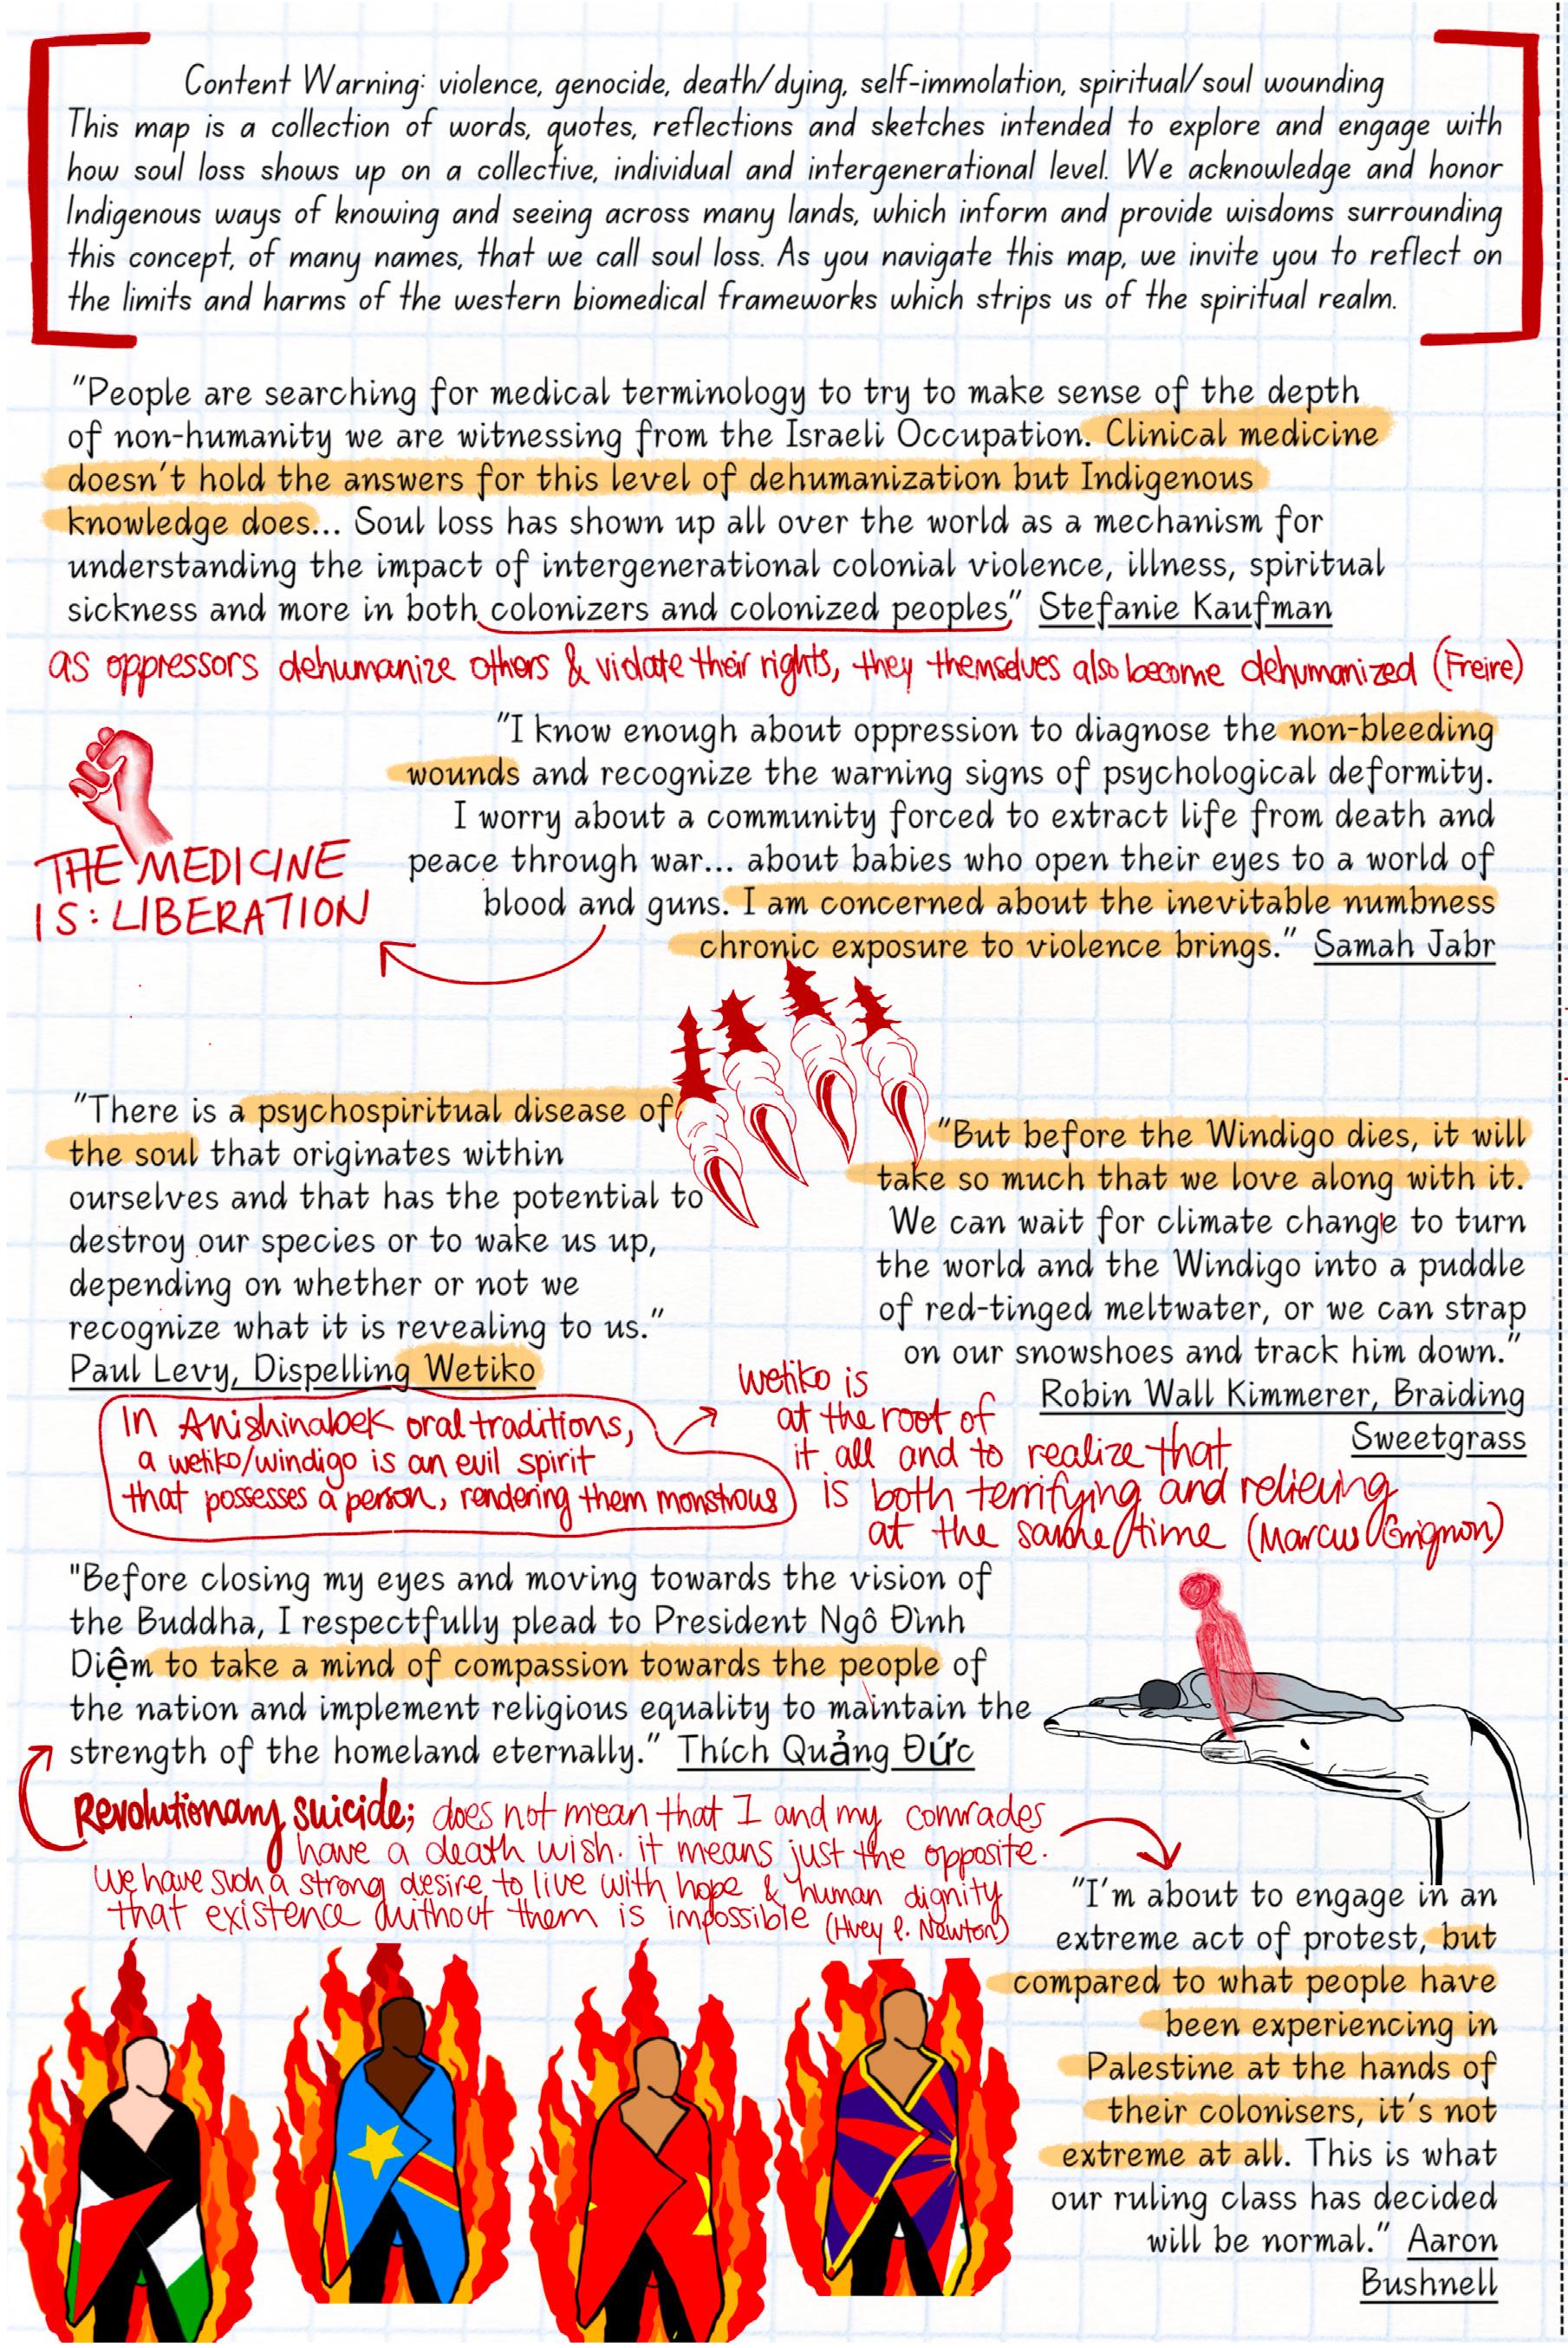 Content Warning: violence, genocide, death/dying, self-immolation, spiritual/soul wounding
This map is a collection of words, quotes, reflections and sketches intended to explore and engage with
how soul loss shows up on a collective, individual and intergenerational level. We acknowledge and honor
Indigenous ways of knowing and seeing across many lands, which inform and provide wisdoms surrounding
this concept, of many names, that we call soul loss. As you navigate this map, we invite you to reflect on
the limits and harms of the western biomedical frameworks which strips us of the spiritual realm.
"People are searching for medical terminology to try to make sense of the depth
of non-humanity we are witnessing from the Israeli Occupation. Clinical medicine
doesn't hold the answers for this level of dehumanization but Indigenous
knowledge does... Soul loss has shown up all over the world as a mechanism for
understanding the impact of intergenerational colonial violence, illness, spiritual
sickness and more in both colonizers and colonized peoples" Stefanie Kaufman
as oppressors dehumanize others & violate their rights, they themselves also become dehumanized (Freire)
"I know enough about oppression to diagnose the non-bleeding
wounds and recognize the warning signs of psychological deformity.
I worry about a community forced to extract life from death and
peace through war... about babies who open their eyes to a world of
blood and guns. I am concerned about the inevitable numbness
chronic exposure to violence brings." Samah Jabr
THE MEDICINE
IS: LIBERATION
"There is a psychospiritual disease of
the soul that originates within
ourselves and that has the potential to
destroy our species or to wake us up,
depending on whether or not we
recognize what it is revealing to us."
Paul Levy, Dispelling Wetiko
"But before the Windigo dies, it will
take so much that we love along with it.
We can wait for climate change to turn
the world and the Windigo into a puddle
of red-tinged meltwater, or we can strap
on our snowshoes and track him down."
Robin Wall Kimmerer, Braiding
Sweetgrass
In Anishinabek oral traditions,
a wetiko/windigo is an evil spirit
that possesses a person, rendering them monstrous
wetiko is
at the root of
it all and to realize that
is both terrifying and relieving
at the same time (Marcus Grignon)
"Before closing my eyes and moving towards the vision of
the Buddha, I respectfully plead to President Ngô Đình
Diệm to take a mind of compassion towards the people of
the nation and implement religious equality to maintain the
strength of the homeland eternally." Thích Quảng Đức
Revolutionary suicide; does not mean that I and my comrades
have a death wish. it means just the opposite.
we have such a strong desire to live with hope & human dignity
that existence without them is impossible (Huey P. Newton)
"I'm about to engage in an
extreme act of protest, but
compared to what people have
been experiencing in
Palestine at the hands of
their colonisers, it's not
extreme at all. This is what
our ruling class has decided
will be normal." Aaron
Bushnell